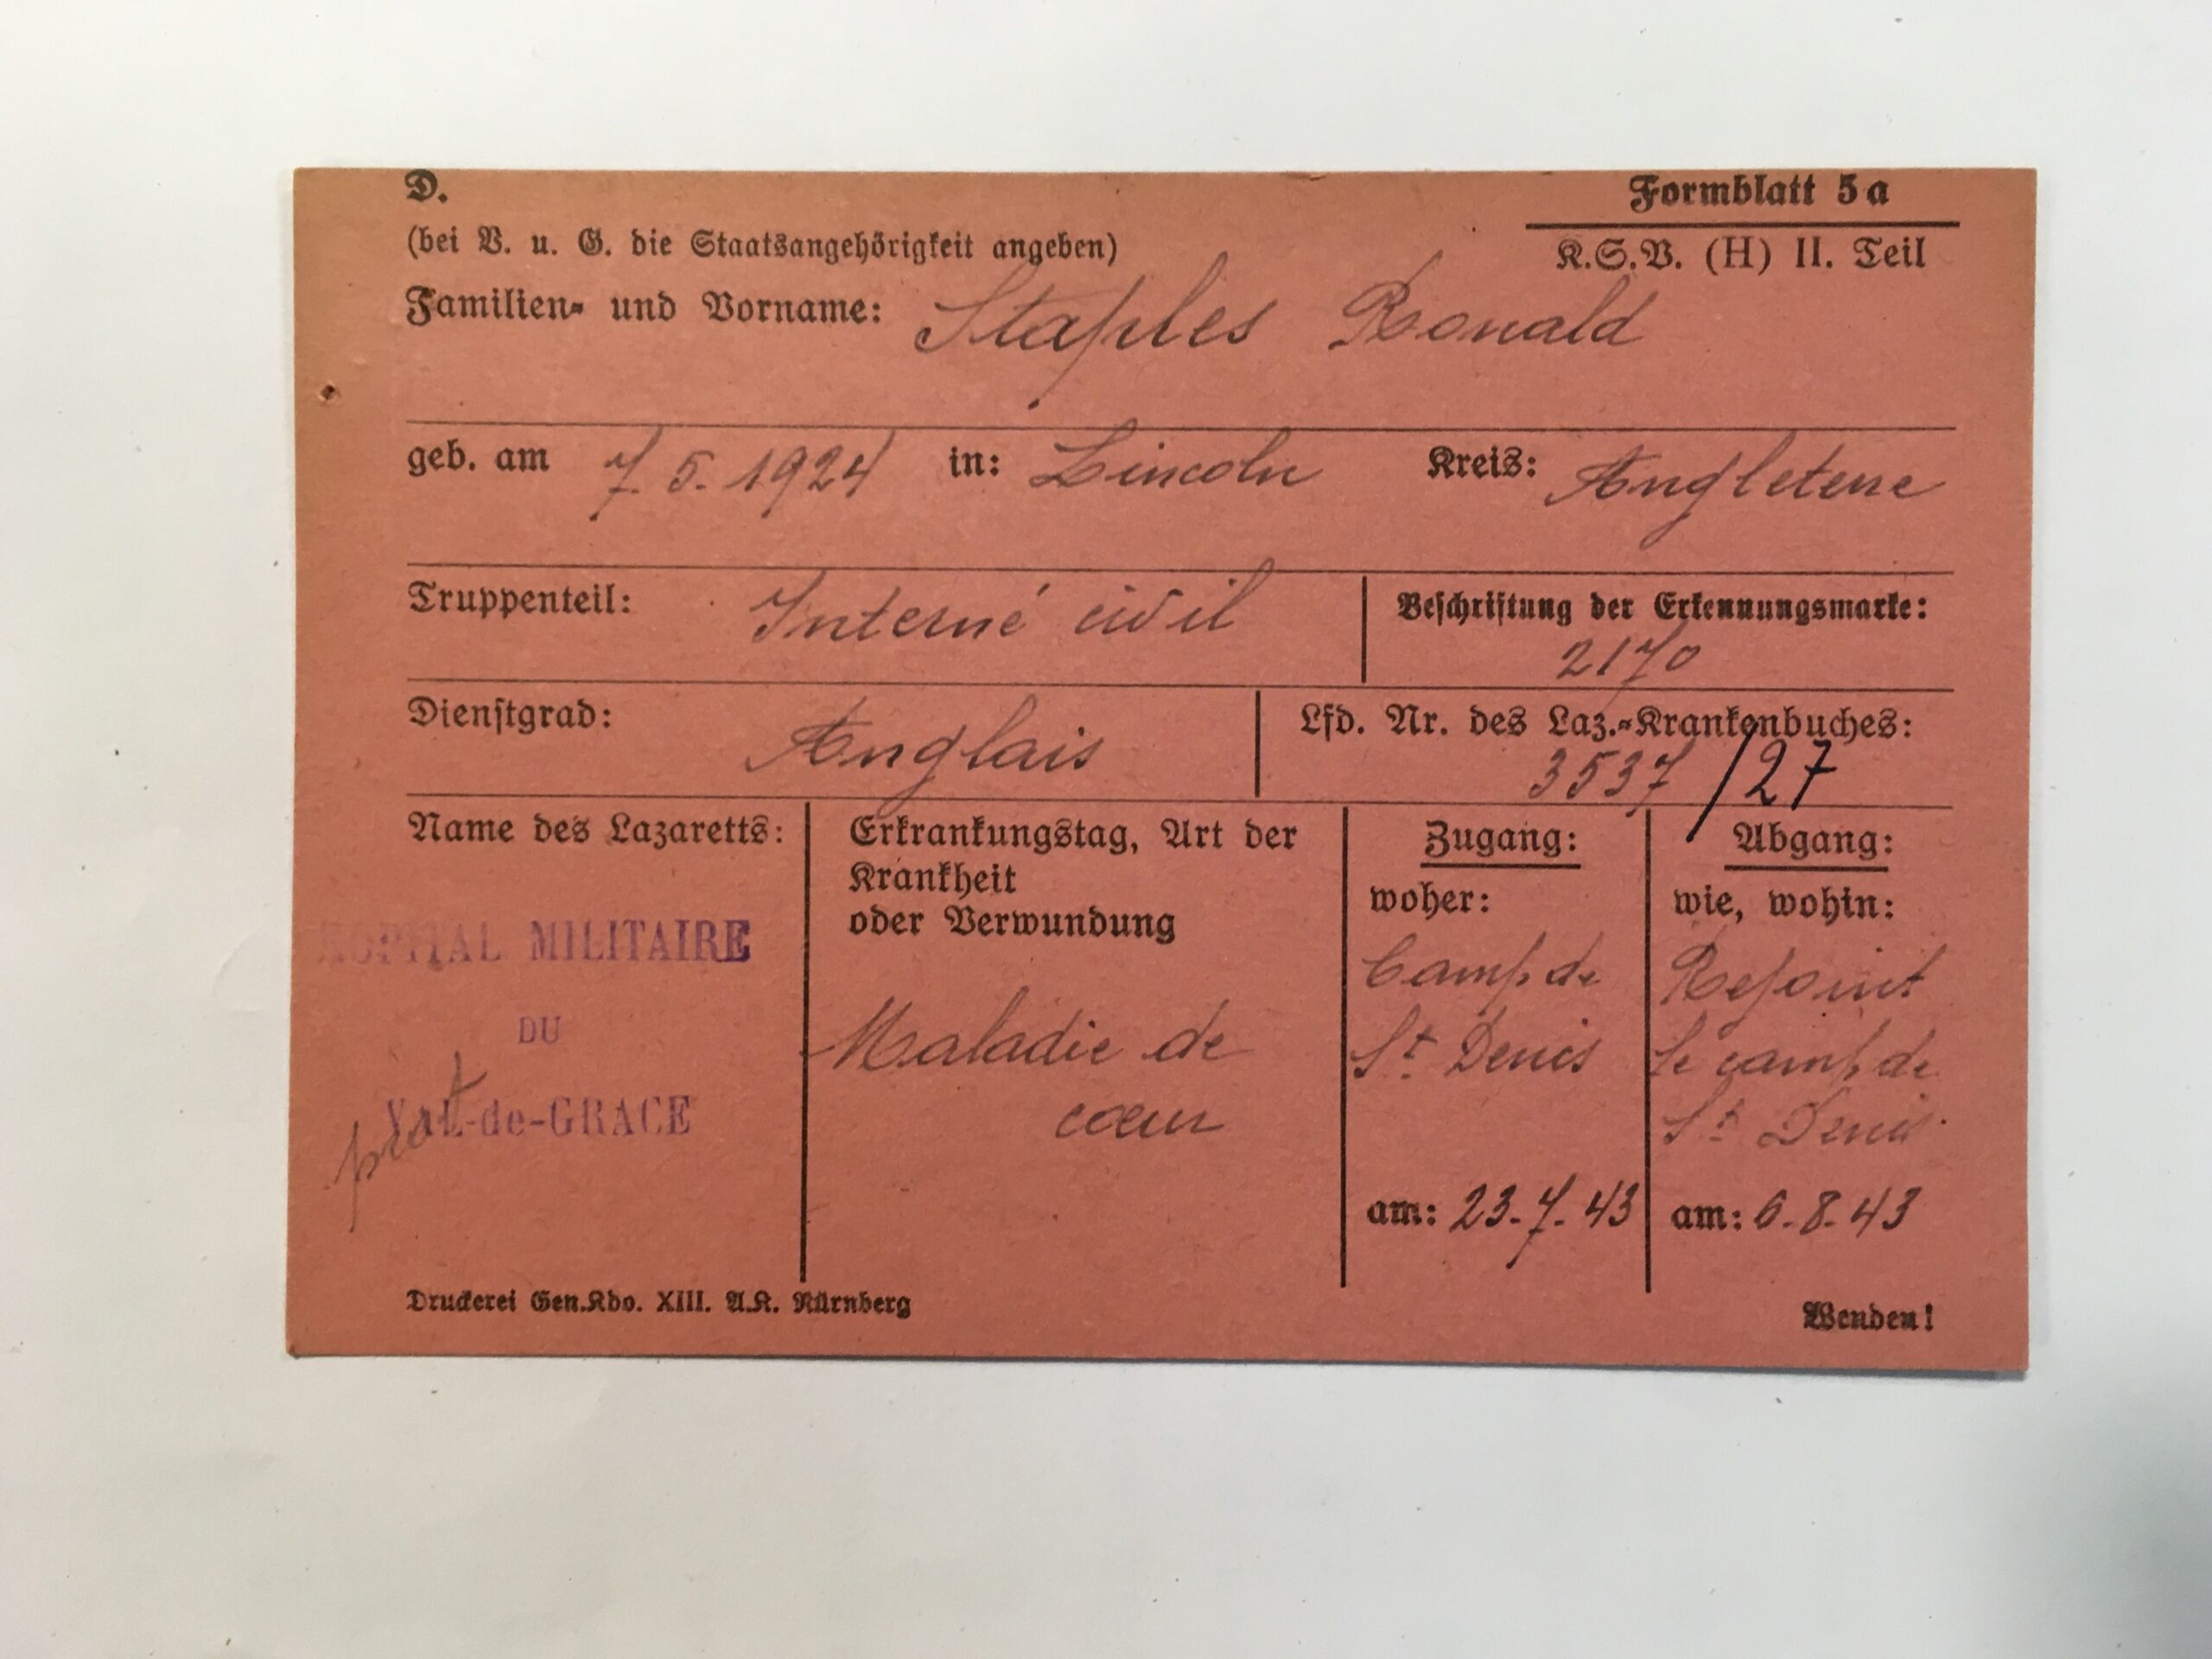 D.
Formblatt 5a
(bei V. u. G. die Staatsangehörigkeit angeben)
K.S.V. (H) II. Teil
Familien- und Vorname: Staples Ronald
geb. am 7.5.1924 in: Lincoln Kreis: Angleterre
Truppenteil: Interné civil
Beschriftung der Erkennungsmarke:
2170
Dienstgrad: Anglais
Lfd. Nr. des Laz.-Krankenbuches:
3537/27
Name des Lazaretts:
HOPITAL MILITAIRE
DU
VAL-de-GRACE
Erkrankungstag, Art der
Krankheit
oder Verwundung
Maladie de
cœur
Zugang:
woher:
Camp de
St. Denis
am: 23-7-43
Abgang:
wie, wohin:
Rejoint
le camp de
St. Denis.
am: 6-8-43
Druckerei Gen.Kdo. XIII. A.K. Nürnberg
Wenden!